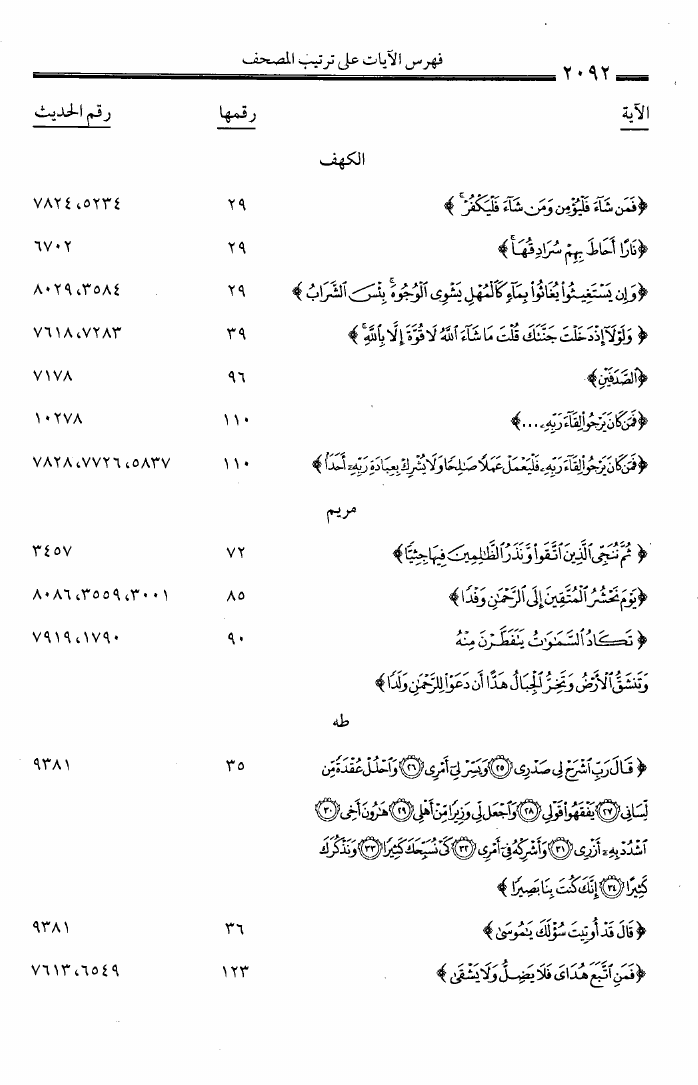 ٢٠٩٢ فهرس الآيات على ترتيب المصحف
الآية رقمها رقم الحديث
الكهف
﴿فَمَن شَآءَ فَلْيُؤْمِن وَمَن شَآءَ فَلْيَكْفُرْ ۚ﴾ ٢٩ ٥٢٣٤، ٧٨٢٤
﴿نَارًا أَحَاطَ بِهِمْ سُرَادِقُهَا ۚ﴾ ٢٩ ٦٧٠٢
﴿وَإِن يَسْتَغِيثُوا۟ يُغَاثُوا۟ بِمَآءٍ كَٱلْمُهْلِ يَشْوِى ٱلْوُجُوهَ ۚ بِئْسَ ٱلشَّرَابُ﴾ ٢٩ ٣٥٨٤، ٨٠٢٩
﴿وَلَوْلَآ إِذْ دَخَلْتَ جَنَّتَكَ قُلْتَ مَا شَآءَ ٱللَّهُ لَا قُوَّةَ إِلَّا بِٱللَّهِ ۚ﴾ ٣٩ ٧٢٨٣، ٧٦١٨
﴿ٱلصَّدَفَيْنِ﴾ ٩٦ ٧١٧٨
﴿فَمَن كَانَ يَرْجُوا۟ لِقَآءَ رَبِّهِۦ ...﴾ ١١٠ ١٠٢٧٨
﴿فَمَن كَانَ يَرْجُوا۟ لِقَآءَ رَبِّهِۦ فَلْيَعْمَلْ عَمَلًا صَٰلِحًا وَلَا يُشْرِكْ بِعِبَادَةِ رَبِّهِۦٓ أَحَدًۢا﴾ ١١٠ ٥٨٣٧، ٧٧٢٦، ٧٨٢٨
مريم
﴿ثُمَّ نُنَجِّى ٱلَّذِينَ ٱتَّقَوا۟ وَّنَذَرُ ٱلظَّٰلِمِينَ فِيهَا جِثِيًّا﴾ ٧٢ ٣٤٥٧
﴿يَوْمَ نَحْشُرُ ٱلْمُتَّقِينَ إِلَى ٱلرَّحْمَٰنِ وَفْدًا﴾ ٨٥ ٣٠٠١، ٣٥٥٩، ٨٠٨٦
﴿تَكَادُ ٱلسَّمَٰوَٰتُ يَتَفَطَّرْنَ مِنْهُ ٩٠ ١٧٩٠، ٧٩١٩
وَتَنشَقُّ ٱلْأَرْضُ وَتَخِرُّ ٱلْجِبَالُ هَدًّا أَن دَعَوْا۟ لِلرَّحْمَٰنِ وَلَدًا﴾
طه
﴿قَالَ رَبِّ ٱشْرَحْ لِى صَدْرِى ٢٥ وَيَسِّرْ لِىٓ أَمْرِى ٢٦ وَٱحْلُلْ عُقْدَةً مِّن ٣٥ ٩٣٨١
لِّسَانِى ٢٧ يَفْقَهُوا۟ قَوْلِى ٢٨ وَٱجْعَل لِّى وَزِيرًا مِّنْ أَهْلِى ٢٩ هَٰرُونَ أَخِى ٣٠
ٱشْدُدْ بِهِۦٓ أَزْرِى ٣١ وَأَشْرِكْهُ فِىٓ أَمْرِى ٣٢ كَىْ نُسَبِّحَكَ كَثِيرًا ٣٣ وَنَذْكُرَكَ
كَثِيرًا ٣٤ إِنَّكَ كُنتَ بِنَا بَصِيرًا﴾
﴿قَالَ قَدْ أُوتِيتَ سُؤْلَكَ يَٰمُوسَىٰ﴾ ٣٦ ٩٣٨١
﴿فَمَنِ ٱتَّبَعَ هُدَاىَ فَلَا يَضِلُّ وَلَا يَشْقَىٰ﴾ ١٢٣ ٦٥٤٩، ٧٦١٣